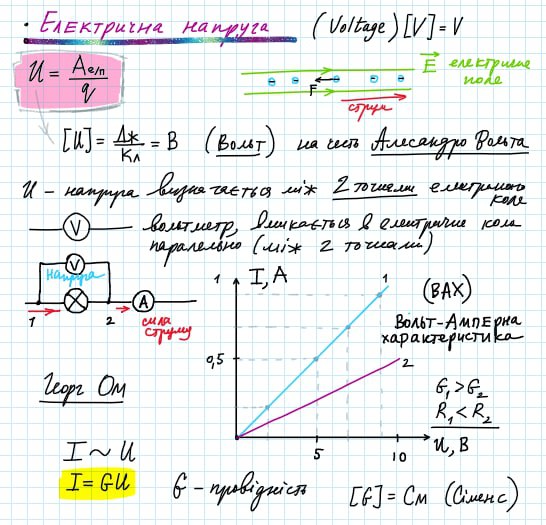 • Електрична напруга (Voltage) [V] = V
U = Aел/q
E електричне поле
F
струм
[U] = Дж/Кл = В (Вольт) на честь Алесандро Вольта
U – напруга визначається між 2 точками електричного кола
V — вольтметр, вмикається в електричне коло
паралельно (між 2 точками)
V
напруга
1 2 A
сила струму
I, A
1
1
0,5
2
5 10
U, В
(ВАХ)
Вольт-Амперна
характеристика
G₁ > G₂
R₁ < R₂
Георг Ом
I ~ U
I = GU
G – провідність [G] = См (Сіменс)